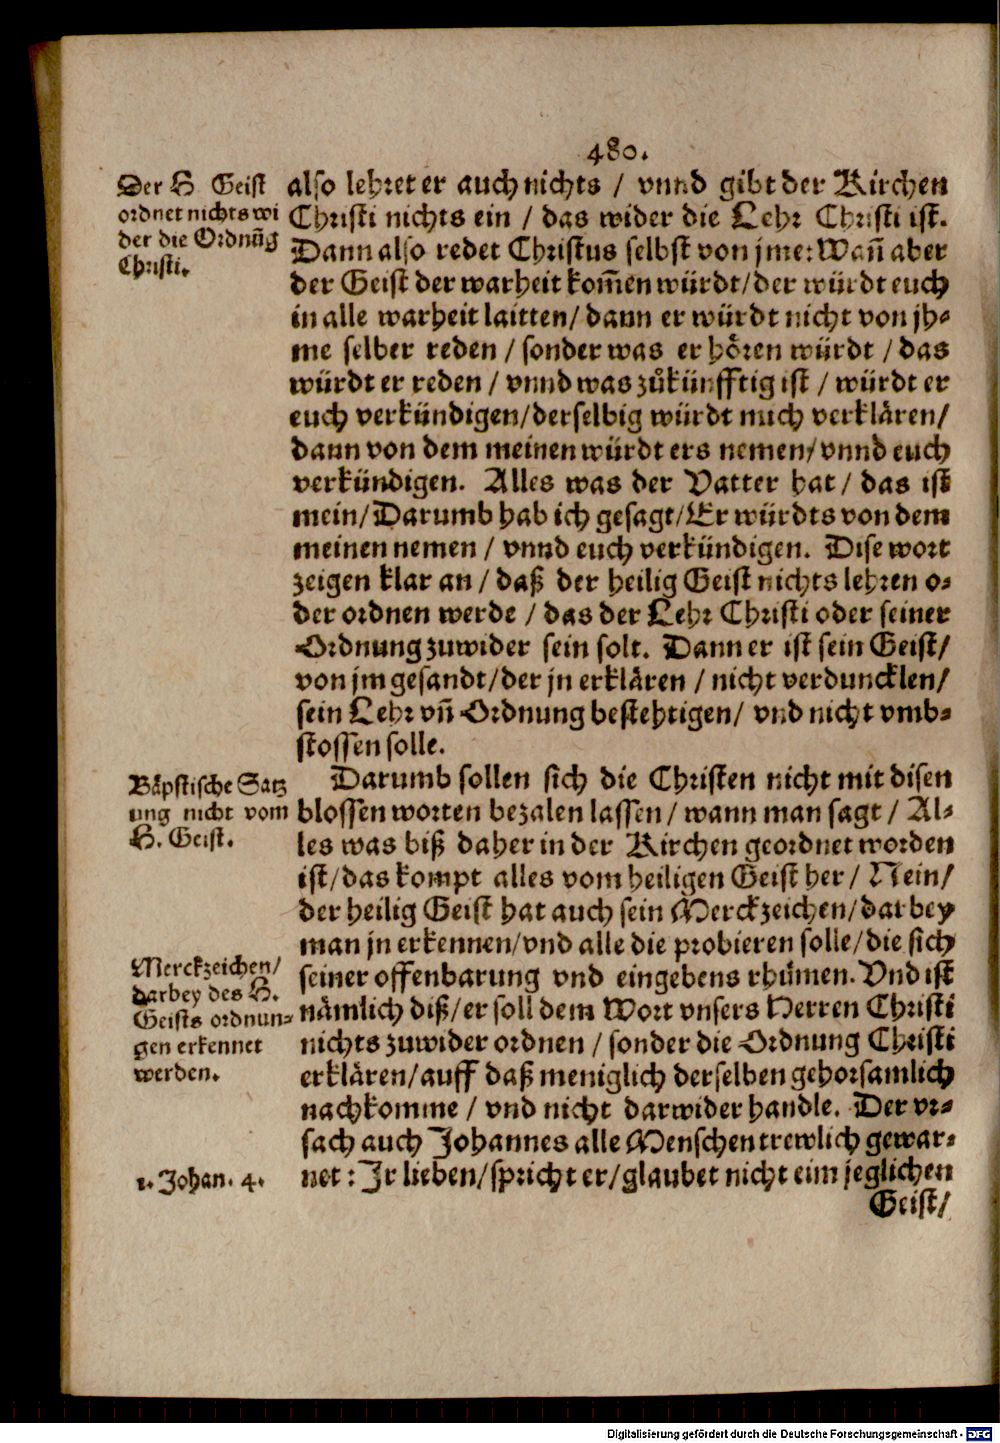 480.
Der H Geist
ordnet nichts wi
der die Ordnūg
Christi.
also lehret er auch nichts / vnnd gibt der Kirchen
Christi nichts ein / das wider die Lehr Christi ist.
Dann also redet Christus selbst von jme: Wañ aber
der Geist der warheit kom̄en würdt / der würdt euch
in alle warheit laitten / dann er würdt nicht von jh-
me selber reden / sonder was er hören würdt / das
würdt er reden / vnnd was zůkünfftig ist / würdt er
euch verkündigen / derselbig würdt mich verklären /
dann von dem meinen würdt ers nemen / vnnd euch
verkündigen. Alles was der Vatter hat / das ist
mein / Darumb hab ich gesagt / Er würdts von dem
meinen nemen / vnnd euch verkündigen. Dise wort
zeigen klar an / daß der heilig Geist nichts lehren o-
der ordnen werde / das der Lehr Christi oder seiner
Ordnung zuwider sein solt. Dann er ist sein Geist /
von jm gesandt / der jn erklären / nicht verduncklen /
sein Lehr vñ Ordnung bestehtigen / vnd nicht vmb-
stossen solle.
Bäpstische Satz
ung nicht vom
H. Geist.
Darumb sollen sich die Christen nicht mit disen
blossen worten bezalen lassen / wann man sagt / Al-
les was biß daher in der Kirchen geordnet worden
ist / das kompt alles vom heiligen Geist her / Nein /
der heilig Geist hat auch sein Merckzeichen / darbey
man jn erkennen / vnd alle die probieren solle / die sich
Merckzeichen /
darbey des H.
Geists ordnun-
gen erkennet
werden.
seiner offenbarung vnd eingebens rhůmen. Vnd ist
nämlich diß / er soll dem Wort vnsers Herren Christi
nichts zuwider ordnen / sonder die Ordnung Christi
erklären / auff daß meniglich derselben gehorsamlich
nachkomme / vnd nicht darwider handle. Der vr-
sach auch Johannes alle Menschen trewlich gewar-
1. Johan. 4.
net: Jr lieben / spricht er / glaubet nicht eim jeglichen
Geist /
Digitalisierung gefördert durch die Deutsche Forschungsgemeinschaft - DFG